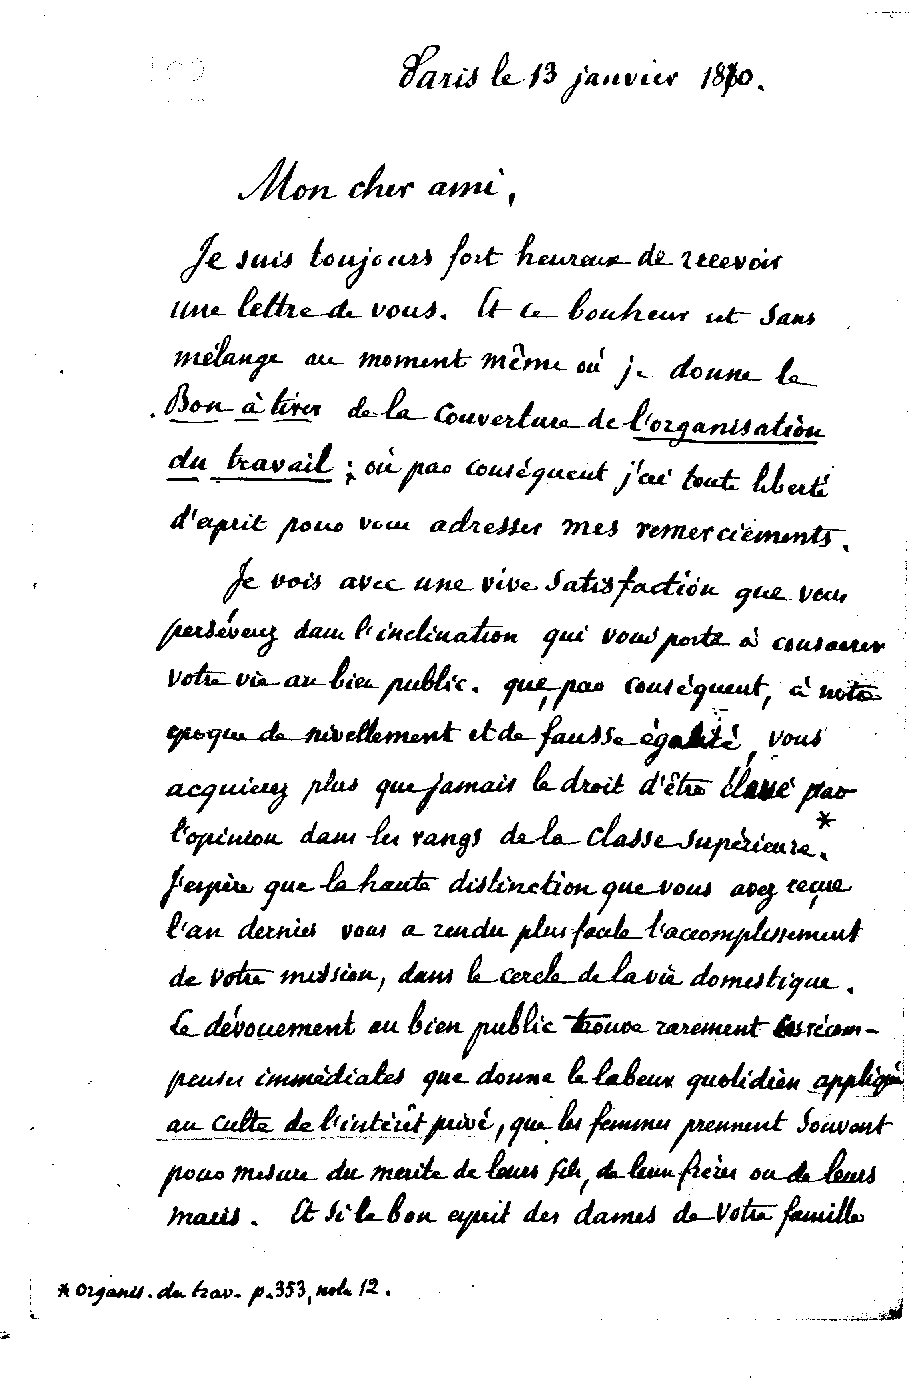 Paris le 13 janvier 1870.
Mon cher ami,
Je suis toujours fort heureux de recevoir
une lettre de vous. Et ce bonheur est sans
mélange au moment même où je donne le
Bon à tirer de la couverture de l'organisation
du travail ; où par conséquent j'ai toute liberté
d'esprit pour vous adresser mes remerciements.
Je vois avec une vive satisfaction que vous
persévérez dans l'inclination qui vous porte à consacrer
votre vie au bien public. que, par conséquent, à notre
époque de nivellement et de fausse égalité, vous
acquierez plus que jamais le droit d'être classé par
l'opinion dans les rangs de la classe supérieure.*
J'espère que la haute distinction que vous avez reçue
l'an dernier vous a rendu plus facile l'accomplissement
de votre mission, dans le cercle de la vie domestique.
Le dévouement au bien public trouve rarement les récom-
penses immédiates que donne le labeur quotidien appliqué
au culte de l'intérêt privé, que les femmes prennent souvent
pour mesure du mérite de leurs fils, de leurs frères ou de leurs
maris. Et si le bon esprit des dames de votre famille
* Organis. du trav. p.353, note 12.